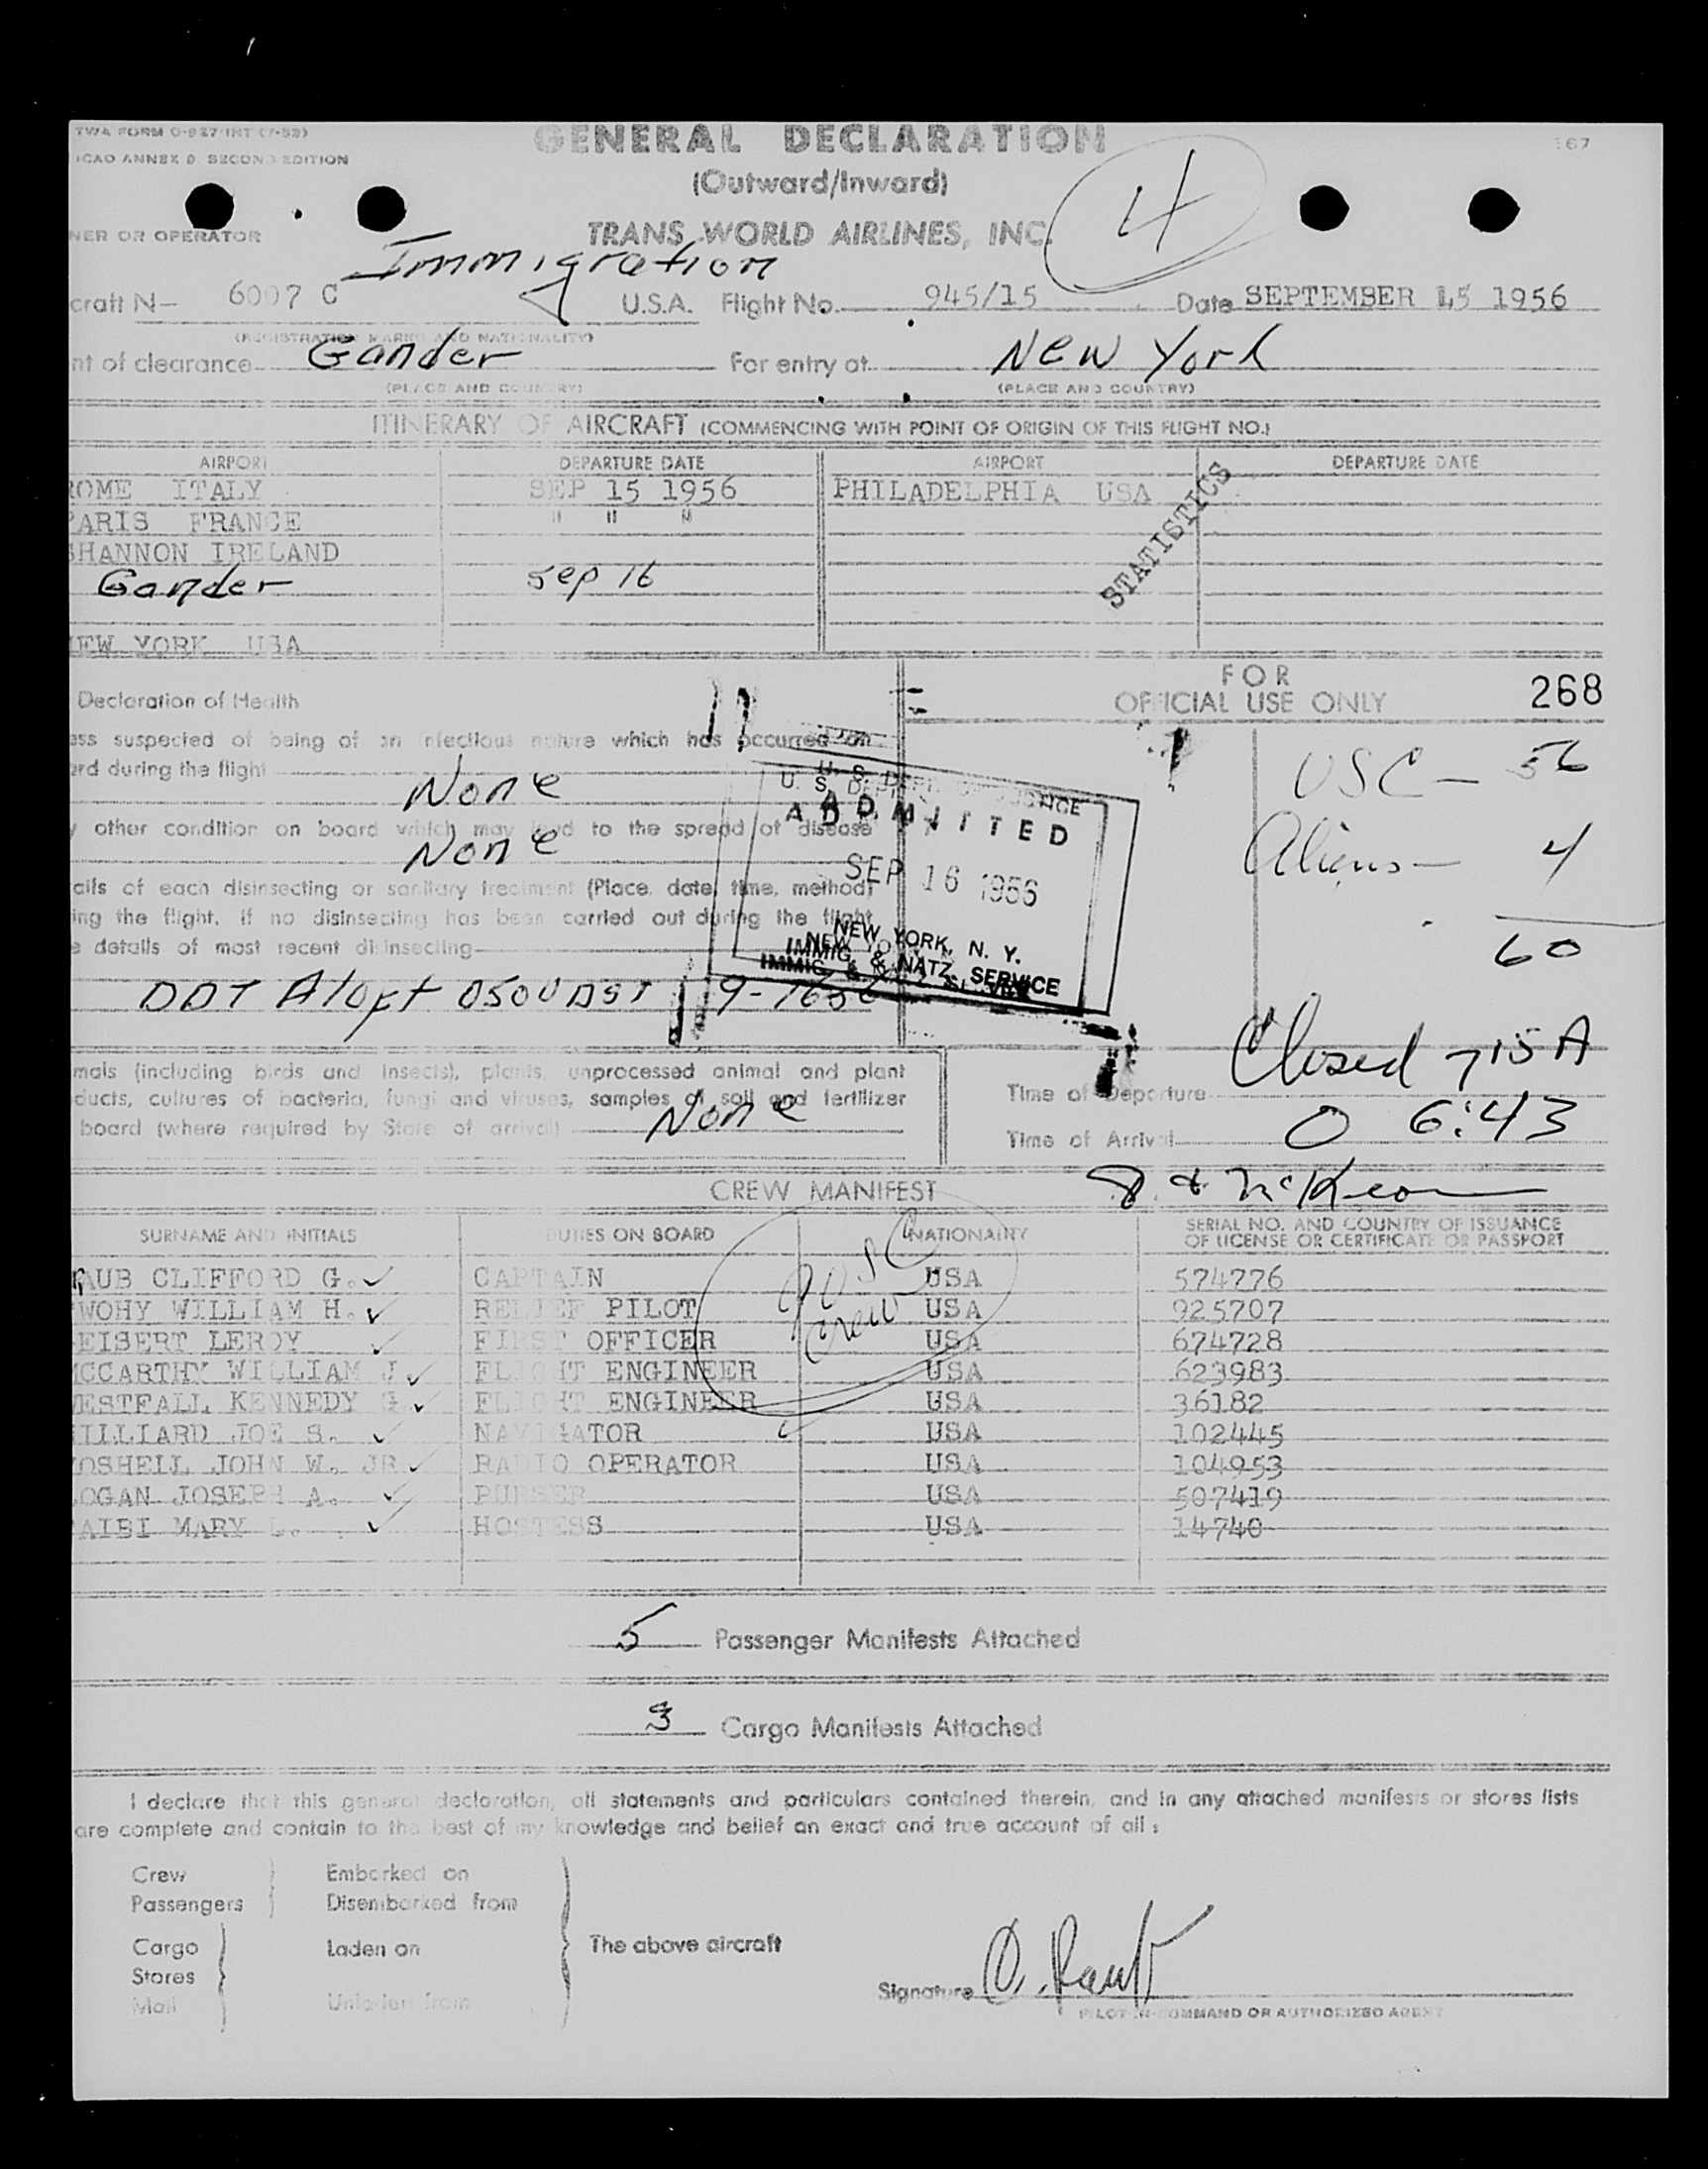 TWA FORM O-927-INT (7-53)
ICAO ANNEX 9 SECOND EDITION
GENERAL DECLARATION
(Outward/Inward)
67
4
NER OR OPERATOR
TRANS WORLD AIRLINES, INC.
Immigration
craft N- 6007 C U.S.A. Flight No. 945/15 Date SEPTEMBER 15 1956
(REGISTRATION MARKS AND NATIONALITY)
nt of clearance Gander For entry at New York
(PLACE AND COUNTRY) (PLACE AND COUNTRY)
ITINERARY OF AIRCRAFT (COMMENCING WITH POINT OF ORIGIN OF THIS FLIGHT NO.)
AIRPORT DEPARTURE DATE AIRPORT DEPARTURE DATE
ROME ITALY SEP 15 1956 PHILADELPHIA USA
PARIS FRANCE " " "
SHANNON IRELAND
Gander Sep 16
STATISTICS
NEW YORK USA
FOR
OFFICIAL USE ONLY 268
Declaration of Health
ess suspected of being of an infectious nature which has occurred on
ard during the flight None
y other condition on board which may lead to the spread of disease
None
ails of each disinsecting or sanitary treatment (Place, date, time, method)
ing the flight. If no disinsecting has been carried out during the flight
e details of most recent disinsecting
DDT 0500
U. S. DEPT. OF JUSTICE
ADMITTED
SEP 16 1956
NEW YORK, N. Y.
IMMIG. & NATZ. SERVICE
USC - 56
Aliens - 4
60
Closed 715 A
mals (including birds and insects), plants, unprocessed animal and plant
ducts, cultures of bacteria, fungi and viruses, samples of soil and fertilizer
board (where required by State of arrival) None
Time of Departure
Time of Arrival 0 6:43
McKeon
CREW MANIFEST
SURNAME AND INITIALS DUTIES ON BOARD NATIONALITY SERIAL NO. AND COUNTRY OF ISSUANCE
OF LICENSE OR CERTIFICATE OR PASSPORT
RAUB CLIFFORD G. CAPTAIN USA 574776
WOHY WILLIAM H. RELIEF PILOT USA 925707
EISERT LEROY FIRST OFFICER USA 674728
MCCARTHY WILLIAM J FLIGHT ENGINEER USA 623983
WESTFALL KENNEDY G FLIGHT ENGINEER USA 36182
HILLIARD JOE S. NAVIGATOR USA 102445
OSHELL JOHN W. JR RADIO OPERATOR USA 104953
LOGAN JOSEPH A. PURSER USA 507419
AIBI MARY L. HOSTESS USA 14740
USC
Crew
5 Passenger Manifests Attached
3 Cargo Manifests Attached
I declare that this general declaration, all statements and particulars contained therein, and in any attached manifests or stores lists
are complete and contain to the best of my knowledge and belief an exact and true account of all :
Crew Embarked on
Passengers Disembarked from
Cargo Laden on The above aircraft
Stores
Mail Unladen from
Signature C. Raub
PILOT IN COMMAND OR AUTHORIZED AGENT